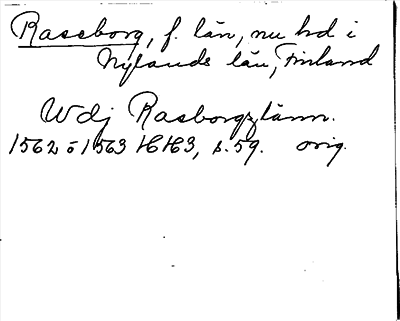 Raseborg, f. län, nu hd i
Nylands län, Finland
Wdj Rasborgzlänn.
1562 ö 1563 HH3, s. 59. orig.